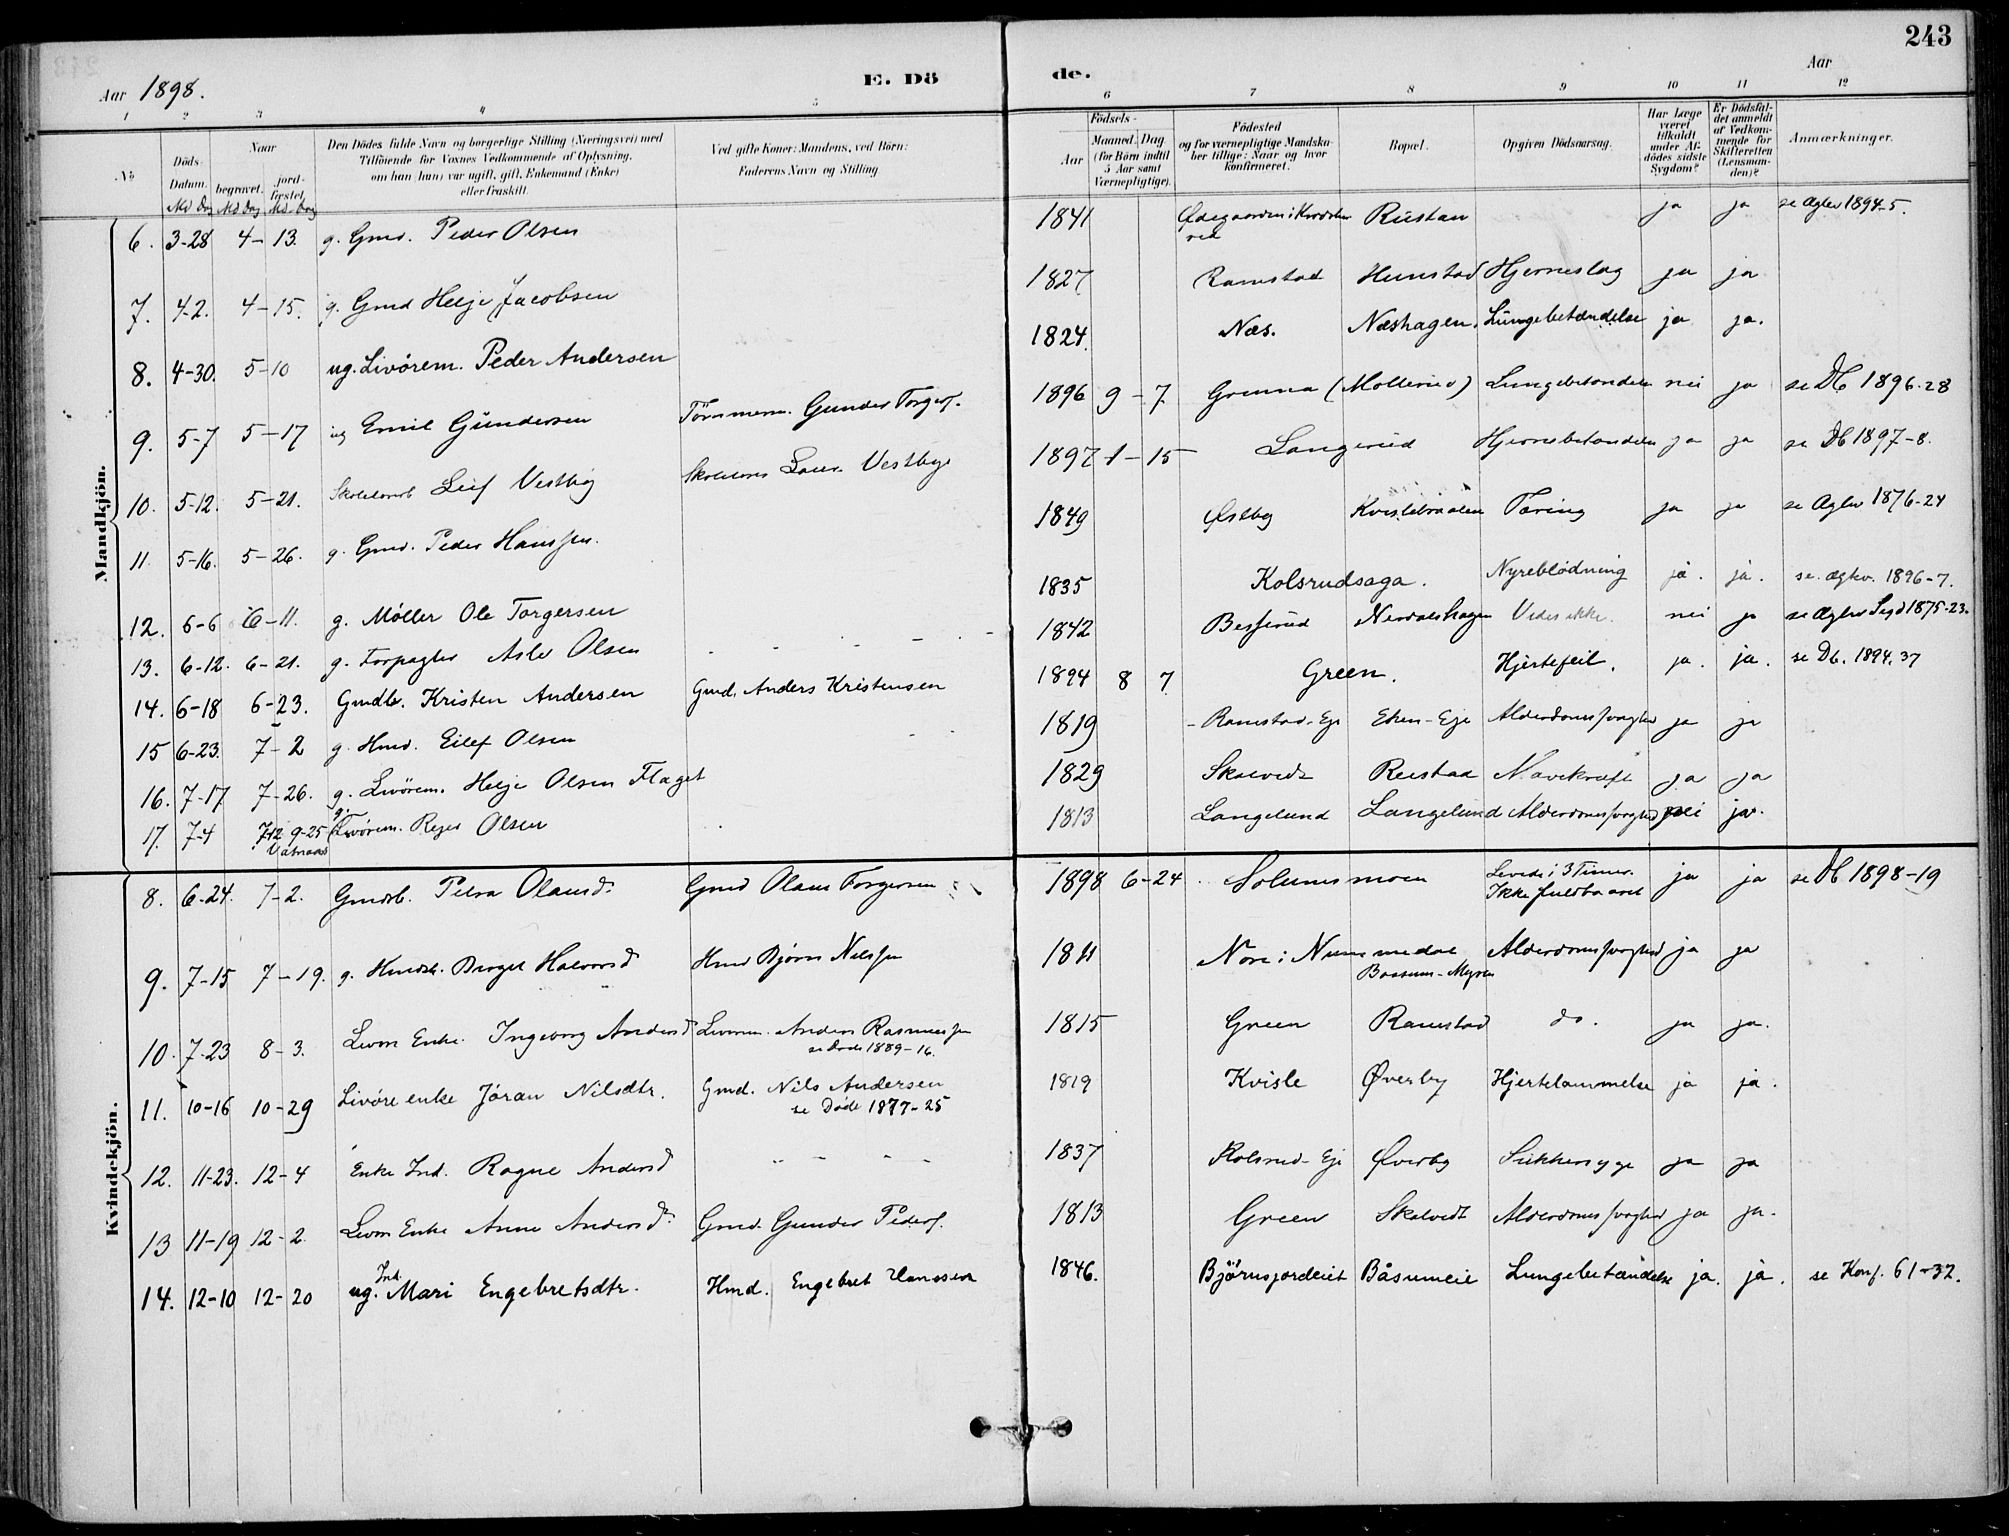 243
Aar 1898.
E. Dö de.
Aar
1 2 3 4 5 6 7 8 9 10 11 12
No
Döds-Datum. Md Dag
Naar begravet. Md Dag jordfæstet. Md. Dag
Den Dödes fulde Navn og borgerlige Stilling (Næringsvei) med
Tilföiende for Voxnes Vedkommende af Oplysning,
om han (hun) var ugift, gift, Enkemand (Enke)
eller fraskilt.
Ved gifte Koner: Mandens, ved Börn:
Faderens Navn og Stilling
Födsels-
Aar Maaned. Dag (for Börn indtil 5 Aar samt Værnepligtige).
Födested
og for værnepligtige Mandskaber tillige: Naar og hvor konfirmeret.
Bopæl.
Opgiven Dödsaarsag.
Har Læge været tilkaldt under Afdödes sidste Sygdom?
Er Dödsfaldet anmeldt af Vedkommende for Skifteretten (Lensmanden)?
Anmærkninger.
Mandkjön.
6. 3-28 4-13. g. Gmd. Peder Olsen 1841 Rustan ja ja se Ægtev 1894-5.
7. 4-2. 4-15. g. Gmd Helje Jacobsen 1827 Ramstad Hunstad Hjerneslag ja ja
8. 4-30. 5-10 ug. Livörem. Peder Andersen 1824. Næs. Næshagen. Lungebetændelse ja ja.
9. 5-7 5-17 ug Emil Gundersen Gunder Torgers. 1896 9-7 Grimna Lungebetændelse nei ja se Db 1896-28
10. 5-12. 5-21. Leif Vestby Laur. Vestbye 1897 1-15 Langerud Hjernebetændelse ja ja se Db 1897-8.
11. 5-16. 5-26. g. Gmd. Peder Hanssen. 1849 Østby Tæring ja ja se Ægtev 1876-24
12. 6-6 6-11. g. Møller Ole Torgersen 1835 Kolsrudsaga. Nyreblödning ja. ja. se. ægtev. 1896-7.
13. 6-12. 6-21. g. Forpagter Asle Olsen 1842 Besserud Nerdalshagen Vides ikke. nei ja se Ægtev Sigd 1875-23.
14. 6-18 6-23. Gmdb. Kristen Andersen Gmd. Anders Kristensen 1894 8 7 Green. Hjertefeil. ja. ja. se Db. 1894. 37
15 6-23. 7-2 g. Hmd. Eilef Olsen 1819 Ramstad-Eje Eken-Eje Alderdomssvaghed ja ja
16. 7-17 7-26. g. Livörem. Helje Olsen Flaget 1829 Skalvedt Rustad Mavekræft ja ja
17. 7-4 7-12 9-25 g. Livörem. Olsen 1813 Langelund Langelund Alderdomssvaghed nei ja.
Kvindekjön.
8. 6-24. 7-2. Gmdb. Petra Olausd. Gmd Olaus Torgersen 1898 6-24 Solumsmoen Levede i 3 Timer. Ikke fuldbaaret ja ja se Db 1898-19
9. 7-15 7-19. g. Birget Halvorsd Hmd Bjørn Nilssen 1811 Nore i Nummedal Bossum-Myren Alderdomssvaghed ja ja
10. 7-23 8-3. Livör Enke. Ingeborg Andersd Livörem. Anders Rasmussen se Døde 1889-16. 1815 Green Ramstad do. ja ja.
11. 10-16 10-29 Livöre enke Jöran Nilsdtr. Gmd. Nils Andersen se Døde 1877-25 1819 Kvisle Øverby Hjertelammelse ja ja.
12. 11-23. 12-4 Enke Ind. Ragne Andersd 1837 Kolsrud-Eje Øverby Sukkersyge ja ja
13 11-19 12-2. Livör Enke Anne Andersd. Gmd. Gunder Peders. 1813 Green Skalvedt Alderdomssvaghed ja ja.
14. 12-10 12-20 ug. Ind. Mari Engebretsdtr. Hmd. Engebret Hanssen 1846. Björnsjordeiet Båsumeie Lungebetændelse ja. ja. se Konf. 61-32.